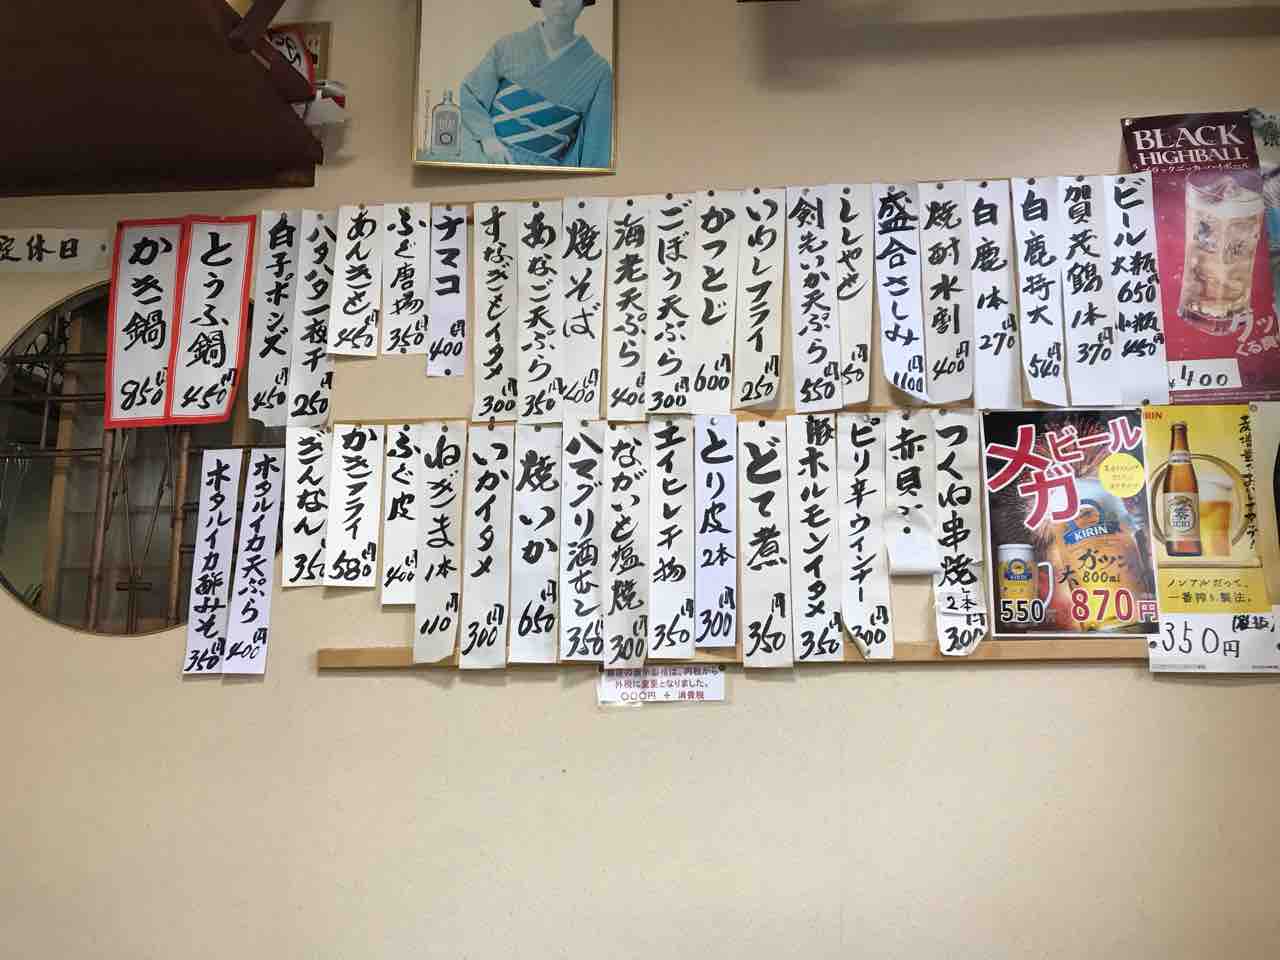 定休日
ビール大瓶650円
小瓶450円
加賀茂鶴1本370円
白鹿特大540円
白鹿1本270円
焼酎水割400円
盛合さしみ1100円
ししゃも
剣先いか天ぷら550円
いわしフライ250円
かつとじ600円
ごぼう天ぷら300円
海老天ぷら400円
焼そば400円
あなご天ぷら350円
すなぎもイタメ300円
ナマコ400円
ふぐ唐揚350円
あんきも450円
ハタハタ一夜干250円
白子ポンズ450円
とうふ鍋450円
かき鍋850円
つくね串焼2本300円
赤貝
ピリ辛ウインナー300円
豚ホルモンイタメ350円
どて煮350円
とり皮2本300円
エイヒレ干物350円
ながいも塩焼300円
ハマグリ酒むし350円
焼いか650円
いかイタメ300円
ねぎま1本110円
ふぐ皮400円
かきフライ580円
ぎんなん350
ホタルイカ天ぷら400円
ホタルイカ酢みそ350円
BLACK
HIGHBALL
ブラックニッカハイボール
¥400
メガ
ビール
KIRIN
大ガツン
800ml
550
870円
KIRIN
ノンアルだって、
一番搾り製法。
350円
(税抜)
外税に変更となりました。
〇〇〇円 + 消費税